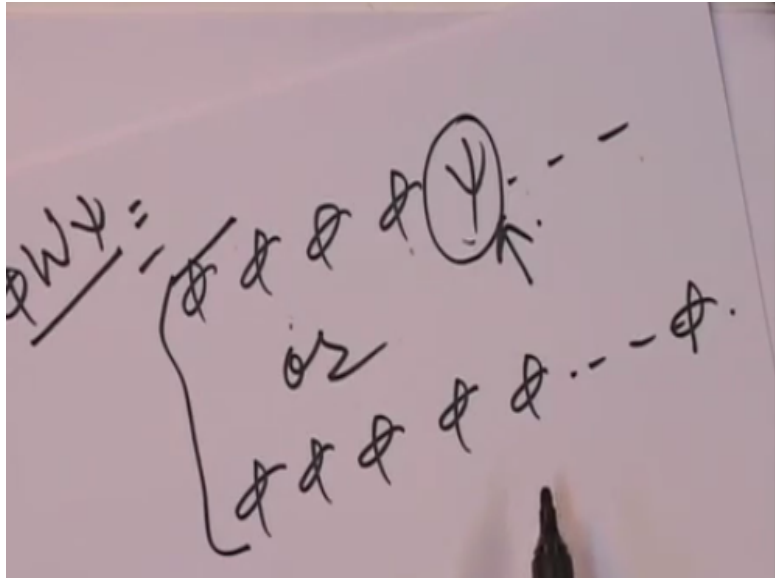 ϕWΨ =
ϕ ϕ ϕ ϕ Ψ . - -
or
ϕ ϕ ϕ ϕ ϕ . - - ϕ .